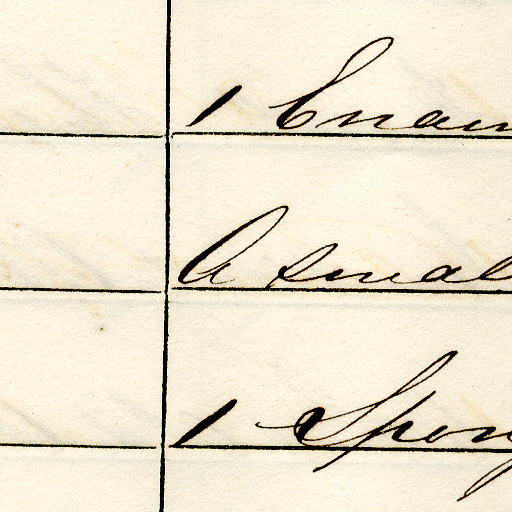 1 Enam
A small
1 Spong